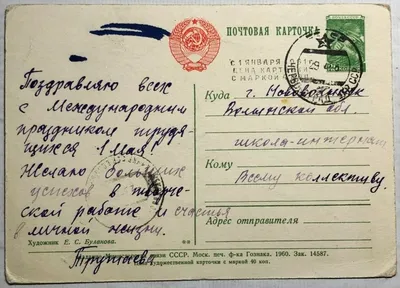 ПОЧТОВАЯ КАРТОЧКА
С 1 ЯНВАРЯ
ЦЕНА КАРТ
С МАРКОЙ
Куда г. Нововолынск
Волынской обл.
школа-интернат
Кому
Всему коллективу.
Адрес отправителя
Поздравляю всех
с Международным
праздником трудя
щихся 1 Мая!
Желаю больших
успехов в творче
ской работе и счастья
в личной жизни.
Художник Е. С. Буланова.
связи СССР. Моск. печ. ф-ка Гознака. 1960. Зак. 14587.
художественной карточки с маркой 40 коп.